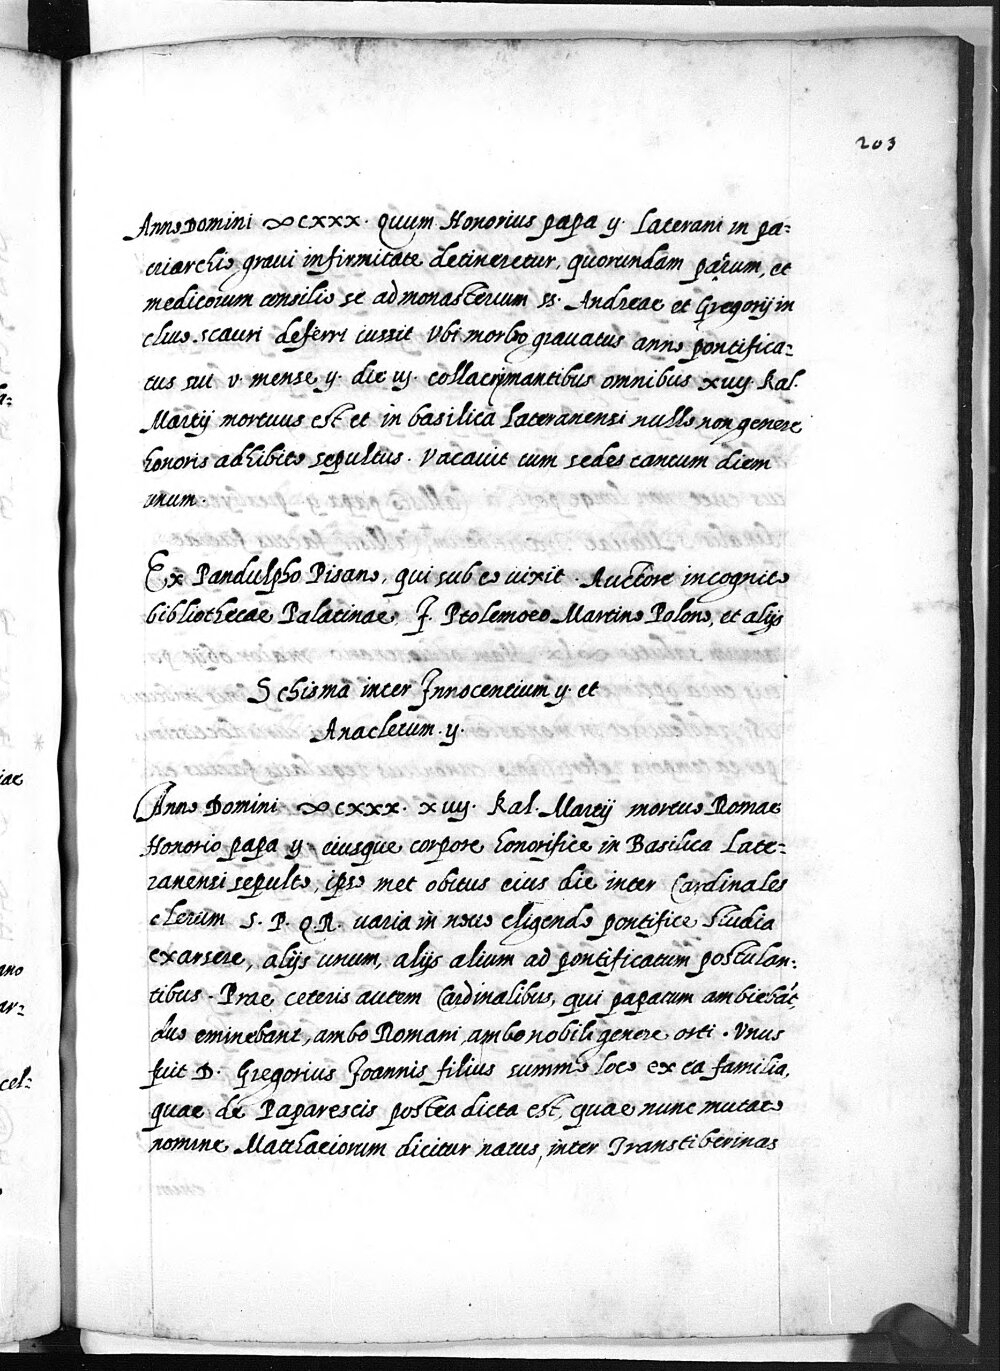 203
Anno Domini ∞cxxx. quum Honorius papa ij. Laterani in pa-
triarchio graui infirmitate detineretur, quorundam patrum, et
medicorum consilio se ad monasterium ss. Andreae et Gregorij in
cliuo scauri deferri iussit Vbi morbo grauatus anno pontifica-
tus sui v. mense ij. die iij. collacrymantibus omnibus xvij kal.
Martij mortuus est et in basilica Lateranensi nullo non genere
honoris adhibito sepultus. Vacauit tum sedes tantum diem
unum.
Ex Pandulpho Pisano, qui sub eo uixit. Auctore incognito
bibliothecae Palatinae, F. Ptolemoeo Martino Polono, et alijs
Schisma inter Innocentium ij. et
Anacletum. ij.
Anno Domini ∞cxxx. xvij. kal. Martij mortuo Romae
Honorio papa ij eiusque corpore honorifice in Basilica Late-
ranensi sepulto, ipso met obitus eius die inter Cardinales
clerum S. P. Q. R. uaria in nouo eligendo pontifice studia
exarsere, alijs unum, alijs alium ad pontificatum postulan-
tibus. Prae ceteris autem Cardinalibus, qui papatum ambiebāt,
duo eminebant, ambo Romani ambo nobili genere orti. Vnus
fuit D. Gregorius Joannis filius summo loco ex ea familia,
quae de Paparescis postea dicta est, quae nunc mutato
nomine Matthaeiorum dicitur natus, inter Transtiberinas